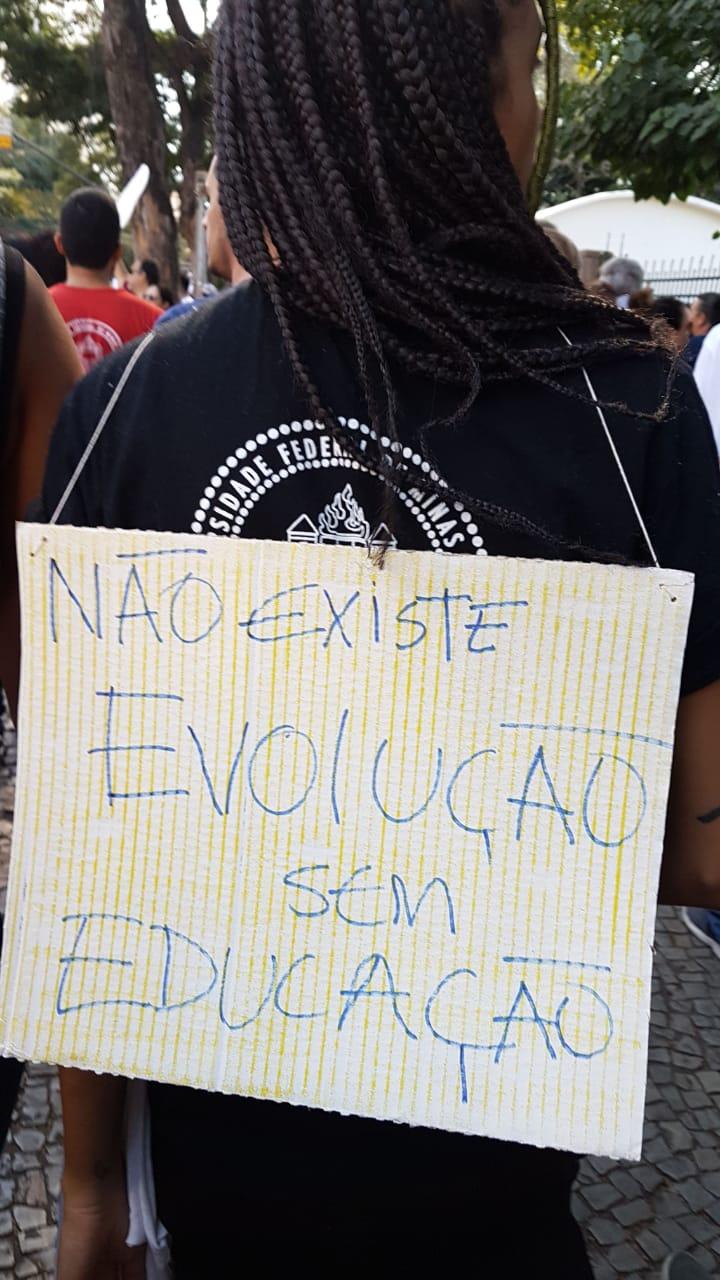 SIDADE FEDERAL DE MINAS
NÃO EXISTE
EVOLUÇÃO
SEM
EDUCAÇÃO